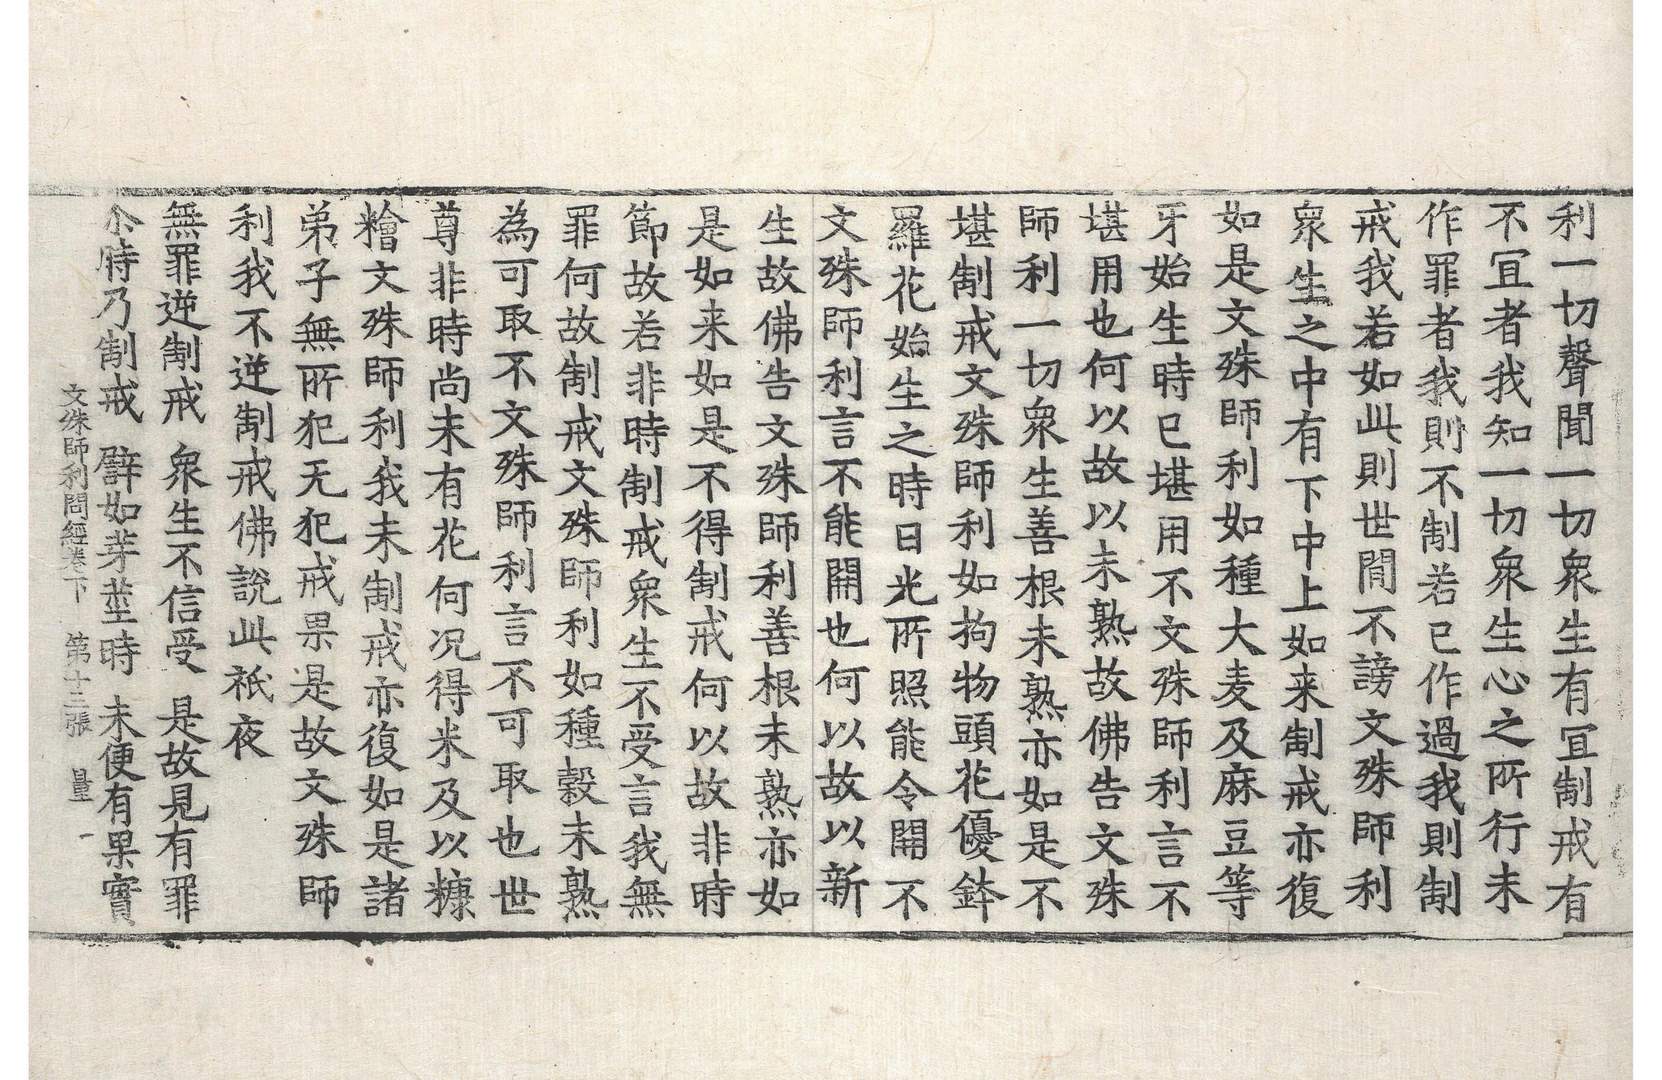 利一切聲聞一切衆生有冝制戒有
不冝者我知一切衆生心之所行未
作罪者我則不制若已作過我則制
戒我若如此則世閒不謗文殊師利
衆生之中有下中上如来制戒亦復
如是文殊師利如種大麦及麻豆等
牙始生時已堪用不文殊師利言不
堪用也何以故以未熟故佛告文殊
師利一切衆生善根未熟亦如是不
堪制戒文殊師利如拘物頭花優鉢
羅花始生之時日光所照能令開不
文殊師利言不能開也何以故以新
生故佛告文殊師利善根未熟亦如
是如来如是不得制戒何以故非時
節故若非時制戒衆生不受言我無
罪何故制戒文殊師利如種穀未熟
為可取不文殊師利言不可取也世
尊非時尚未有花何況得米及以糠
糩文殊師利我未制戒亦復如是諸
弟子無所犯无犯戒果是故文殊師
利我不逆制戒佛說此祇夜
無罪逆制戒 衆生不信受 是故見有罪
尒時乃制戒 譬如芽莖時 未便有果實
文殊師利問經卷下 第十三張 量 一